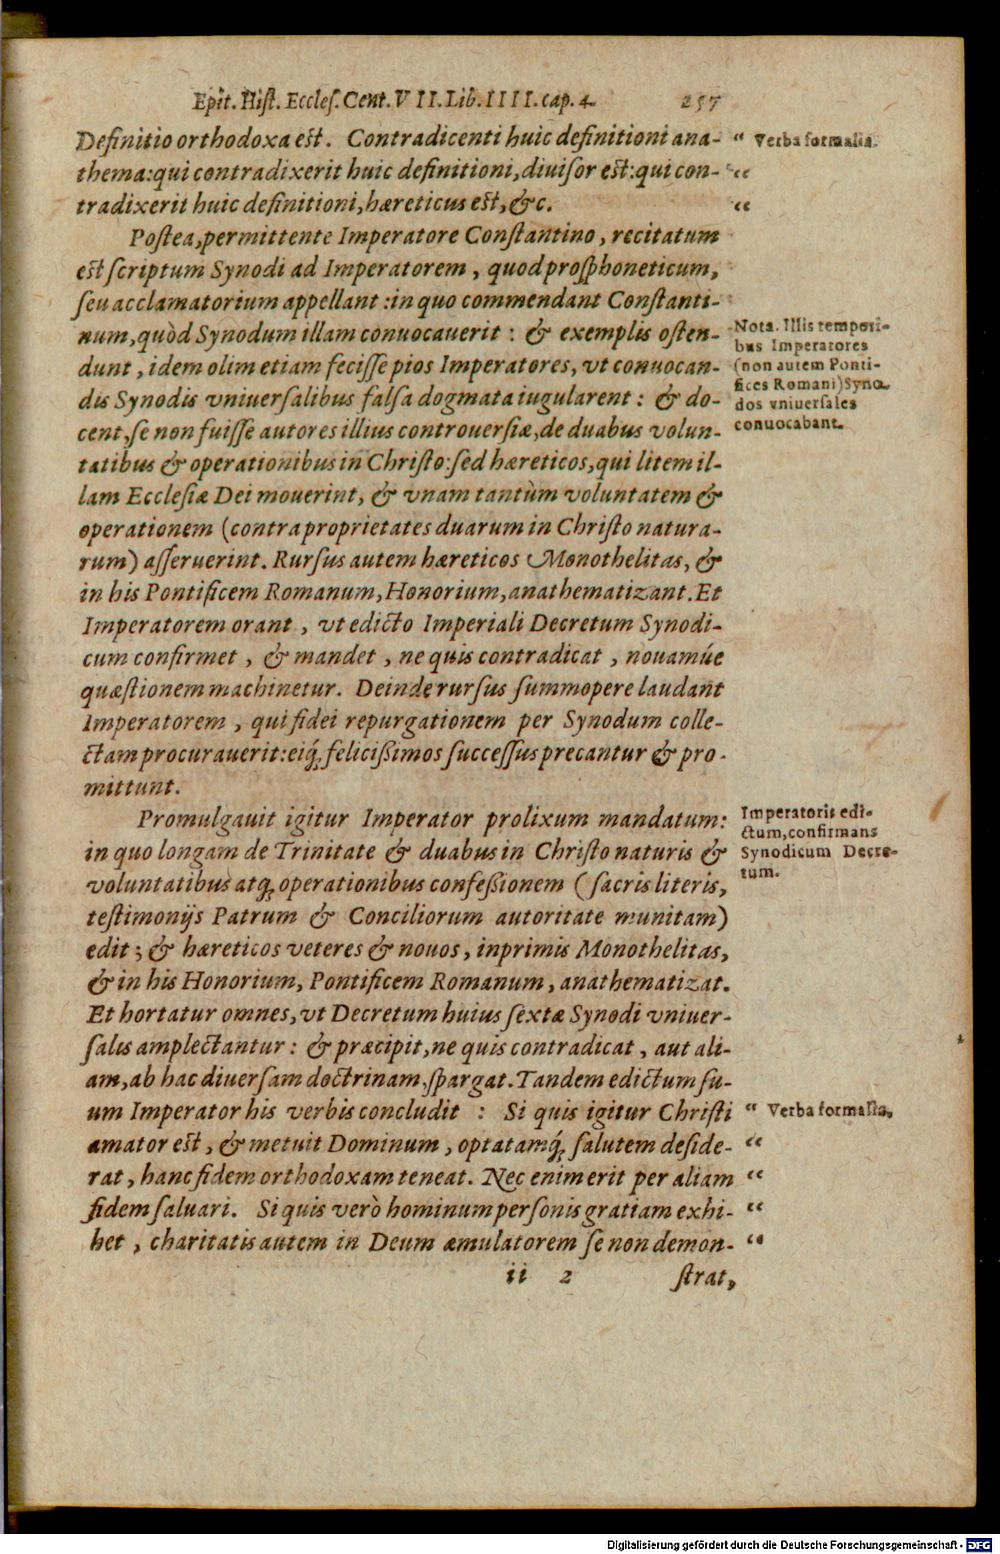 Epit. Hiſt. Eccleſ. Cent. VII. Lib. IIII. cap. 4. 257
Definitio orthodoxa eſt. Contradicenti huic definitioni ana- “ Verba formalia.
thema: qui contradixerit huic definitioni, diuiſor eſt: qui con- “
tradixerit huic definitioni, hæreticus eſt, &c. “
Poſtea, permittente Imperatore Conſtantino, recitatum
eſt ſcriptum Synodi ad Imperatorem, quod proſphoneticum,
ſeu acclamatorium appellant: in quo commendant Conſtanti-
num, quòd Synodum illam conuocauerit: & exemplis oſten-
dunt, idem olim etiam feciſſe pios Imperatores, vt conuocan-
dis Synodis vniuerſalibus falſa dogmata iugularent: & do-
cent, ſe non fuiſſe autores illius controuerſiæ, de duabus volun-
tatibus & operationibus in Chriſto: ſed hæreticos, qui litem il-
lam Eccleſiæ Dei mouerint, & vnam tantùm voluntatem &
operationem (contra proprietates duarum in Chriſto natura-
rum) aſſeruerint. Rurſus autem hæreticos Monothelitas, &
in his Pontificem Romanum, Honorium, anathematizant. Et
Imperatorem orant, vt edicto Imperiali Decretum Synodi-
cum confirmet, & mandet, ne quis contradicat, nouamúe
quæſtionem machinetur. Deinde rurſus ſummopere laudant
Imperatorem, qui fidei repurgationem per Synodum colle-
ctam procurauerit: eiq́; feliciſſimos ſucceſſus precantur & pro-
mittunt.
Nota. Illis tempori-
bus Imperatores
(non autem Ponti-
fices Romani) Syno-
dos vniuerſales
conuocabant.
Promulgauit igitur Imperator prolixum mandatum:
in quo longam de Trinitate & duabus in Chriſto naturis &
voluntatibus atq́; operationibus confeſſionem (ſacris literis,
teſtimonijs Patrum & Conciliorum autoritate munitam)
edit; & hæreticos veteres & nouos, inprimis Monothelitas,
& in his Honorium, Pontificem Romanum, anathematizat.
Et hortatur omnes, vt Decretum huius ſextæ Synodi vniuer-
ſalis amplectantur: & præcipit, ne quis contradicat, aut ali-
am, ab hac diuerſam doctrinam, ſpargat. Tandem edictum ſu-
um Imperator his verbis concludit: Si quis igitur Chriſti “ Verba formalia,
amator eſt, & metuit Dominum, optatamq́; ſalutem deſide- “
rat, hanc fidem orthodoxam teneat. Nec enim erit per aliam “
fidem ſaluari. Si quis verò hominum perſonis gratiam exhi- “
bet, charitatis autem in Deum æmulatorem ſe non demon- “
Imperatoris edi-
ctum, confirmans
Synodicum Decre-
tum.
ii 2 ſtrat,
Digitalisierung gefördert durch die Deutsche Forschungsgemeinschaft - DFG